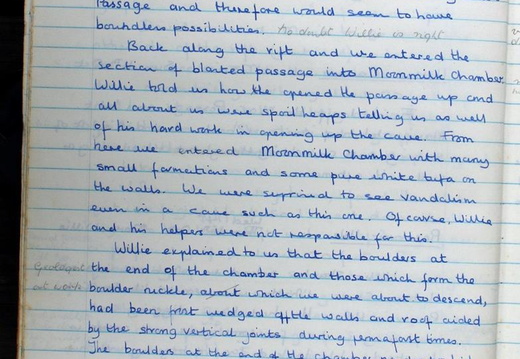 Passage and therefore would seem to have
boundless possibilities. No doubt Willie is right
Back along the rift and we entered the
section of blasted passage into Moonmilk Chamber.
Willie told us how the opened the passage up and
all about us were spoil heaps telling us as well
of his hard work in opening up the cave. From
here we entered Moonmilk Chamber with many
small formations and some pure white tufa on
the walls. We were suprised to see vandalism
even in a cave such as this one. Of course, Willie
and his helpers were not responsible for this.
Willie explained to us that the boulders at
Geologist the end of the chamber and those which form the
at work boulder ruckle, about which we were about to descend,
had been frost wedged off the walls and roof aided
by the strong vertical joints during permafrost times.
The boulders at the end of the chamber